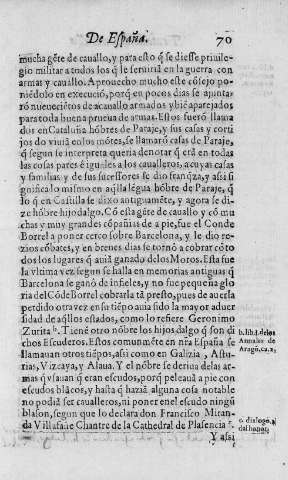 De España. 70
mucha gẽte de cauallo, y para esto q̃ se diesse priuile-
gio militar a todos los q̃ le seruiriã en la guerra con
armas y cauallo. Aprouecho mucho este cõsejo po-
niẽdolo en execuciõ, porq̃ en pocos dias se ajunta-
rõ nueueciẽtos de acauallo armados y biẽ aparejados
para toda buena prueua de armas. Estos fuerõ llama
dos en Cataluña hõbres de Paraje, y sus casas y corti
jos do viuiã en los mõtes, se llamarõ casas de Paraje,
q̃ segun se interpreta queria denotar q̃ erã en todas
las cosas pares è iguales a los caualleros, a cuyas casas
y familias y de sus successores se dio frãq̃za, y assi si
gnifica lo mismo en aq̃lla lẽgua hõbre de Paraje, q̃
lo q̃ en Castilla se dixo antiguamẽte, y agora se di-
ze hõbre hijodalgo. Cõ esta gẽte de cauallo y cõ mu
chas y muy grandes cõpañias de a pie, fue el Conde
Borrel a poner cerco sobre Barcelona, y le dio re-
zios cõbates, y en breues dias se tornò a cobrar cõ to
dos los lugares q̃ auiã ganado delos Moros. Esta fue
la vltima vez segun se halla en memorias antiguas q̃
Barcelona se ganò de infieles, y no fue pequeña glo
ria del Cõde Borrel cobrarla tã presto, pues de auerla
perdido otra vez en su tiẽpo auia sido la mayor aduer
sidad de aq̃llos estados, como lo refiere Geronimo
Zurita b. Tienẽ otro nõbre los hijosdalgo q̃ son di
chos Escuderos. Estos comunmẽte en nra España se
llamauan otros tiẽpos, assi como en Galizia, Astu-
rias, Vizcaya, y Alaua. Y el nõbre se deriua delas ar-
mas q̃ vsauan q̃ eran escudos, porq̃ peleauã a pie con
escudos blãcos, y hasta q̃ hazia alguna cosa notable
no podia ser caualleros, ni poner en el escudo ningũ
blason, segun que lo declara don Francisco Miran-
da Villafañe Chantre de la Cathedral de Plasencia c.
Y assi
b. lib. 1. delos
Annales de
Aragõ, ca. 2.
c. dialogo,